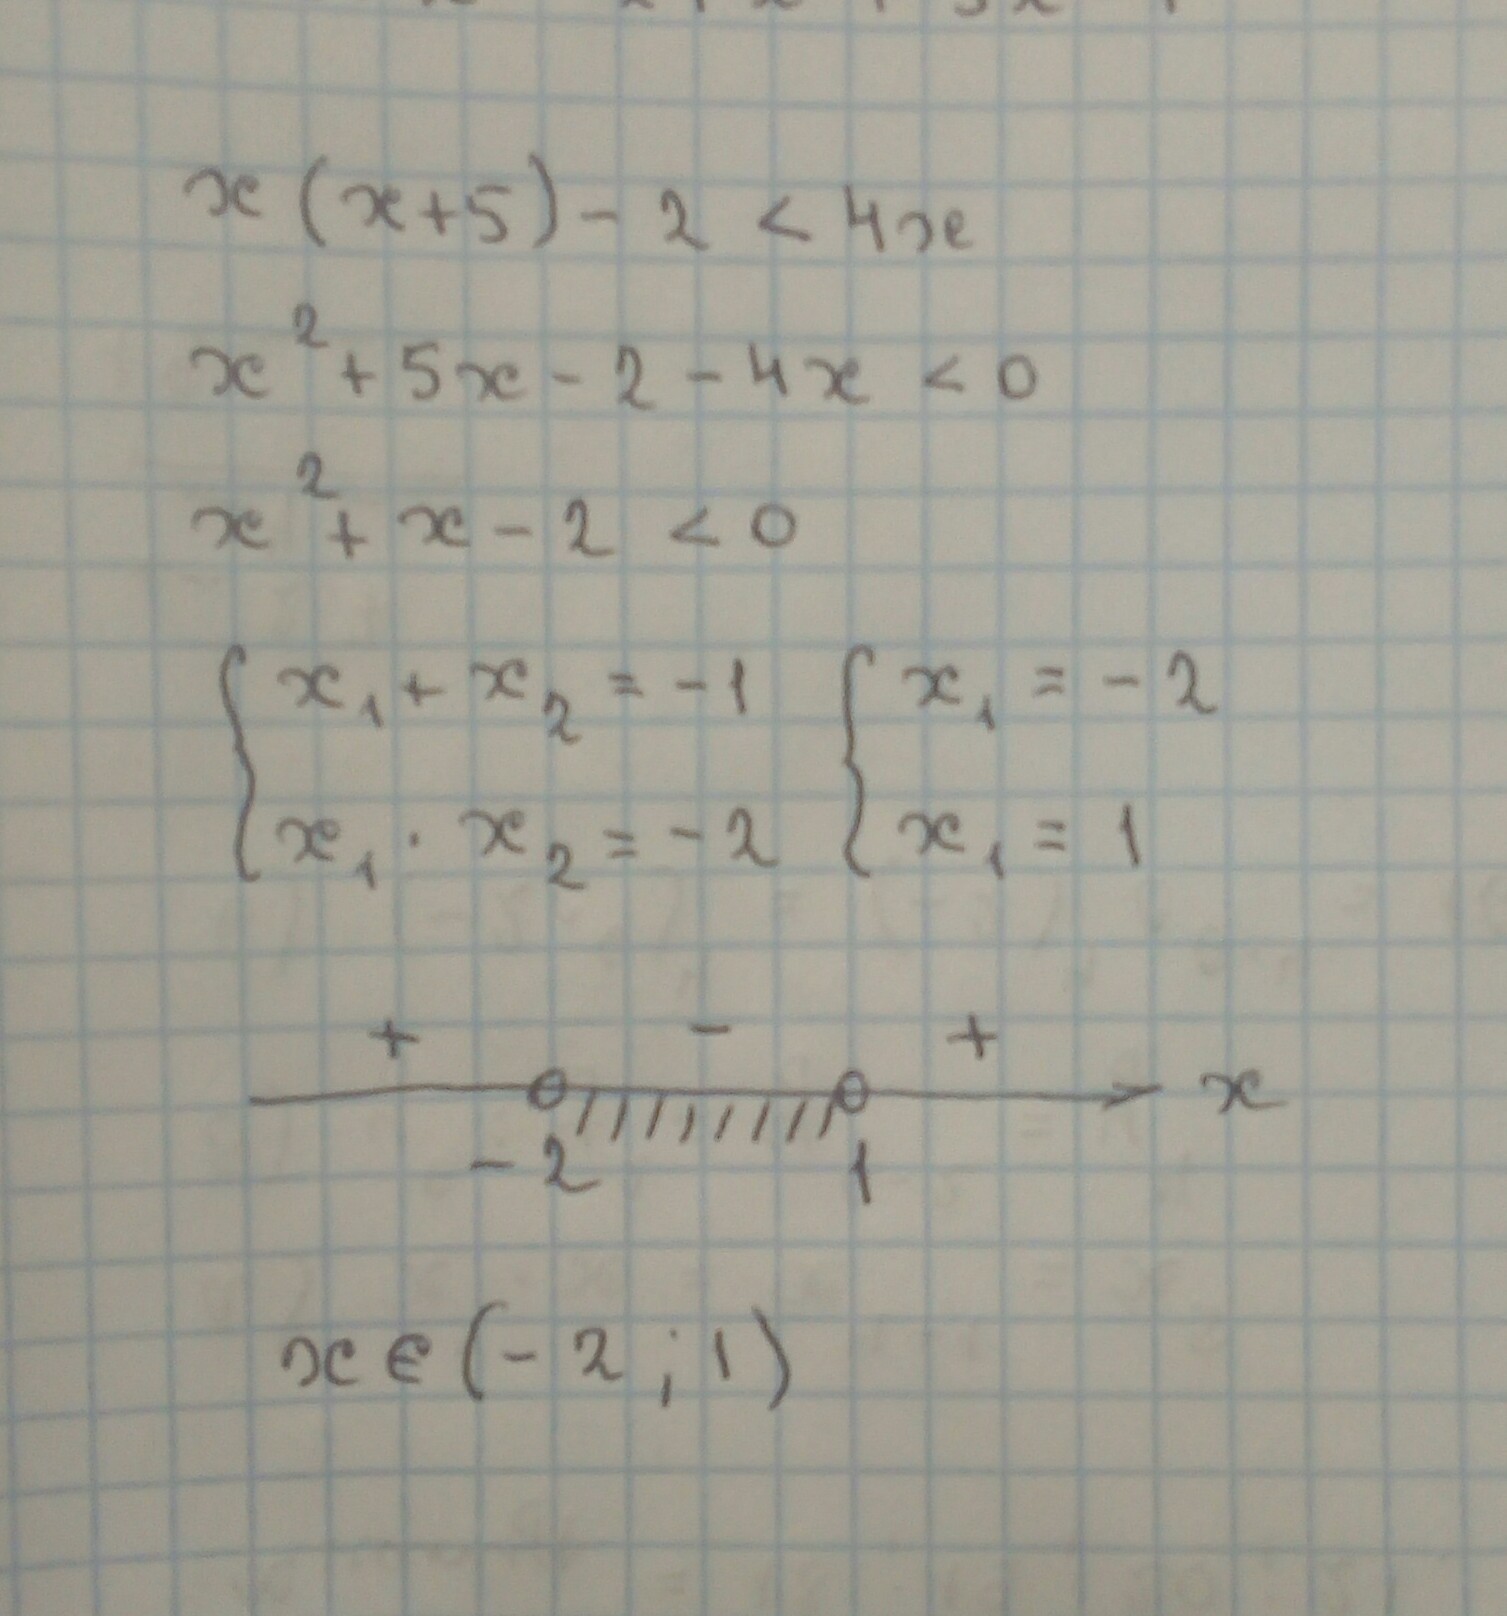 x(x+5)-2<4x
x²+5x-2-4x<0
x²+x-2<0
{x₁+x₂=-1 {x₁=-2
{x₁·x₂=-2 {x₁=1
+ - +
x
-2 1
x∈(-2;1)